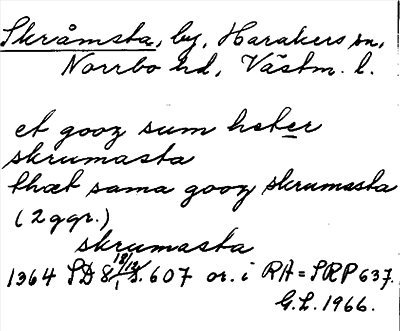 Skråmsta, by, Harakers sn,
Norrbo hd, Västm. l.
et gooz sum heter
skrumasta
thæt sama gooz skrumasta
(2 ggr.)
skrumasta
1364 18/12 SD 8:1 S. 607 or. i RA = SRP 637.
G.L. 1966.